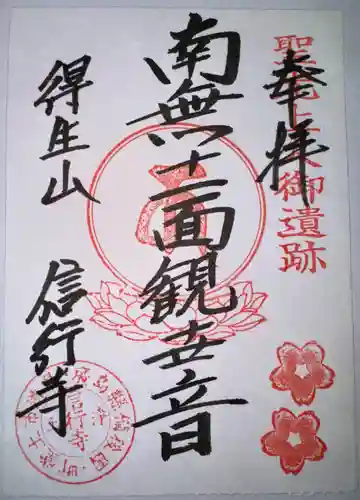 奉拝
南無十一面観世音
得生山
信行寺
御遺跡
信行寺